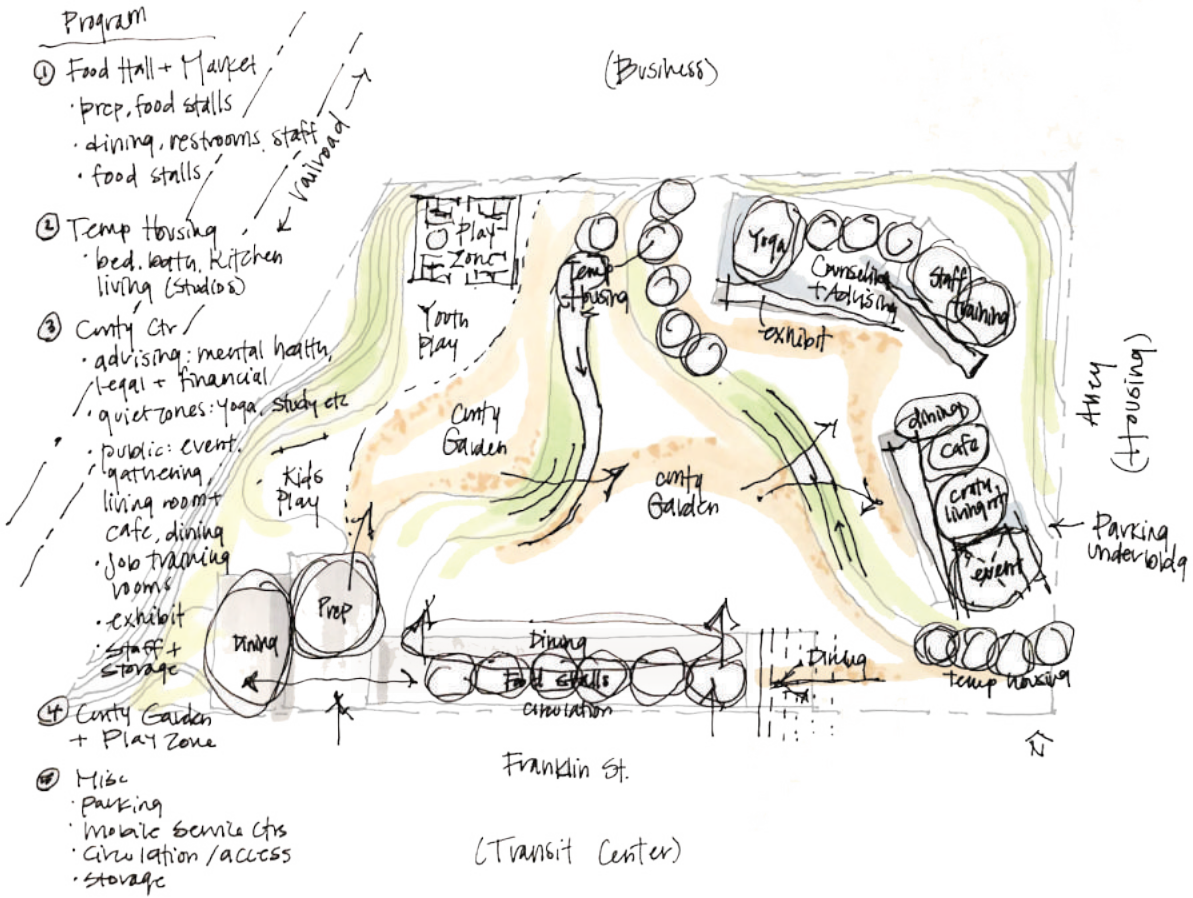 Program
① Food Hall + Market
· prep, food stalls
· dining, restrooms, staff
· food stalls
② Temp Housing
· bed, bath, kitchen
living (studios)
③ Cmty Ctr
· advising: mental health,
legal + financial
· quiet zones: yoga, study etc
· public: event,
gathering,
living room +
cafe, dining
· job training
rooms
· exhibit
· staff +
storage
④ Cmty Garden
+ Play Zone
Misc
· parking
· mobile service ctrs
· circulation / access
· storage
railroad
(Business)
Play
Zone
Youth
Play
Temp
Housing
Yoga
Counseling
+ Advising
Staff
training
exhibit
Cmty
Garden
Kids
Play
Cmty
Garden
dining
cafe
cmty
living rm
event
(Housing)
Parking
under bldg
Dining
Prep
Dining
Food Stalls
circulation
Dining
temp housing
Franklin St.
N
(Transit Center)